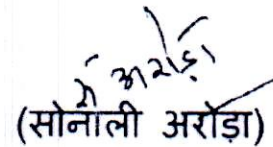 (सोनाली अरोड़ा)